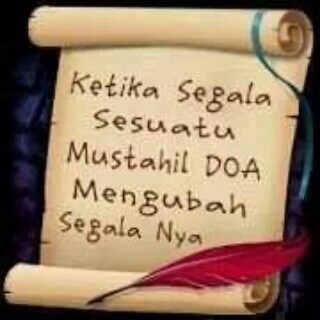 Ketika Segala
Sesuatu
Mustahil DOA
Mengubah
Segala Nya